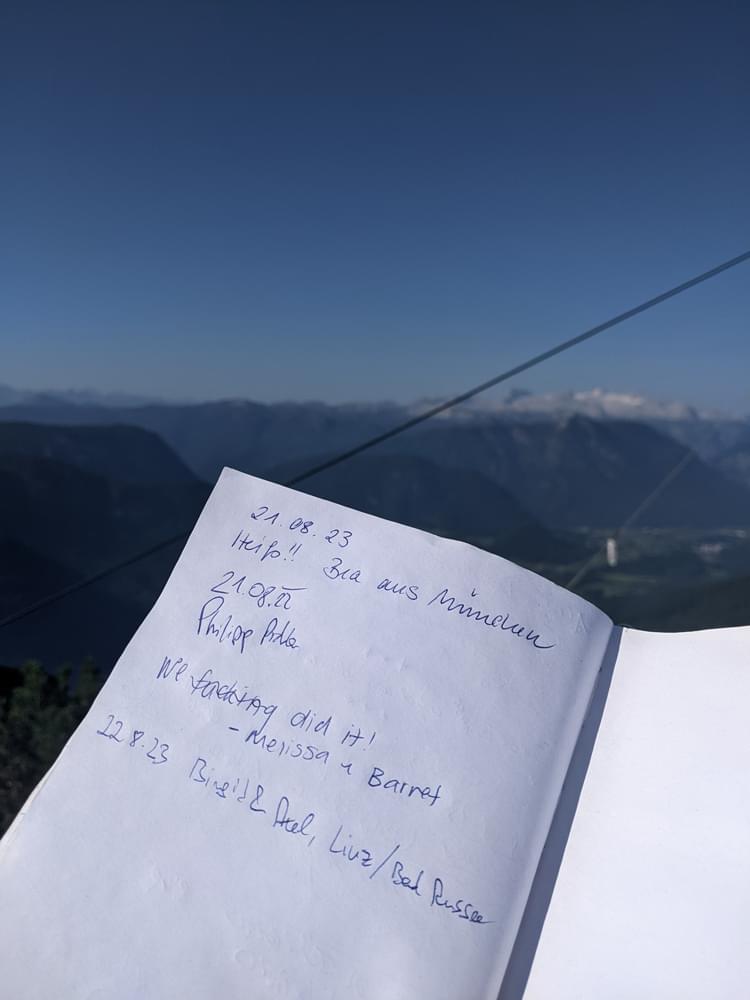 21.08.23
Heiß!! Bea aus München
21.08.22
Philipp
We fucking did it!
- Merissa u Barret
22.8.23 Birgit & Axel, Linz/Bad Aussee